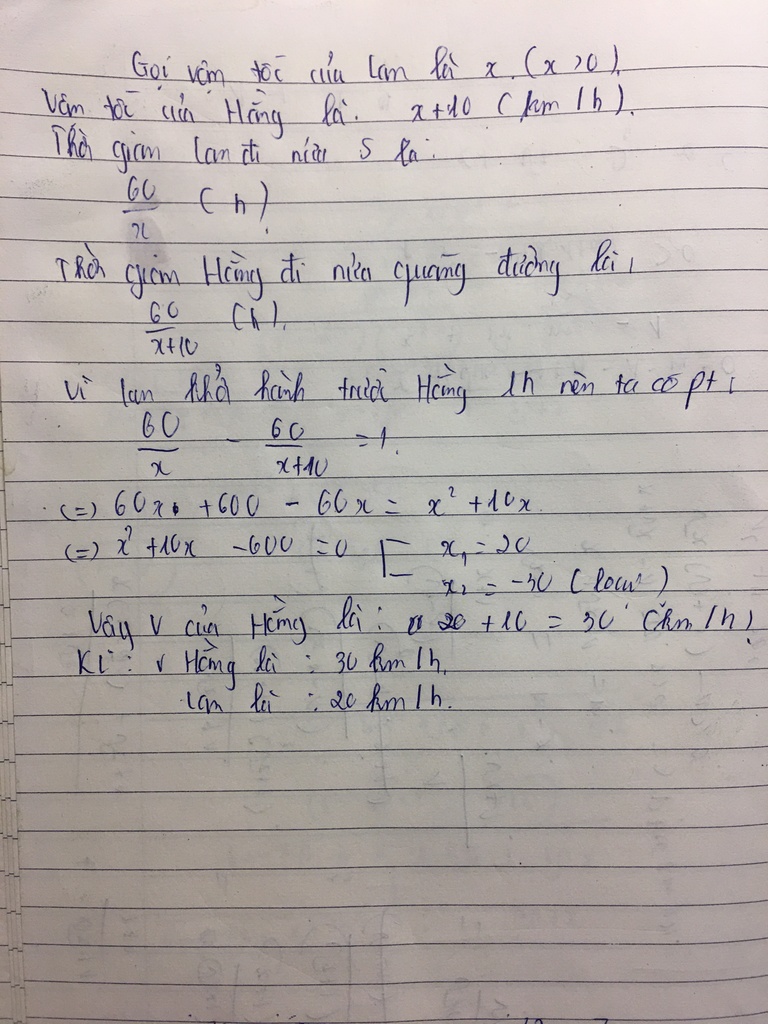 Gọi vận tốc của Lan là x. (x > 0).
Vận tốc của Hằng là. x+10 (km/h).
Thời gian Lan đi nửa S là:
60/x (h)
Thời gian Hằng đi nửa quãng đường là:
60/(x+10) (h).
Vì Lan khởi hành trước Hằng 1h nên ta có pt:
60/x - 60/(x+10) = 1.
(=) 60x + 600 - 60x = x² + 10x
(=) x² + 10x - 600 = 0 [ x₁ = 20
x₂ = -30 (loại)
Vậy V của Hằng là: 20 + 10 = 30 (km/h)
Kl: v Hằng là : 30 km/h.
Lan là : 20 km/h.